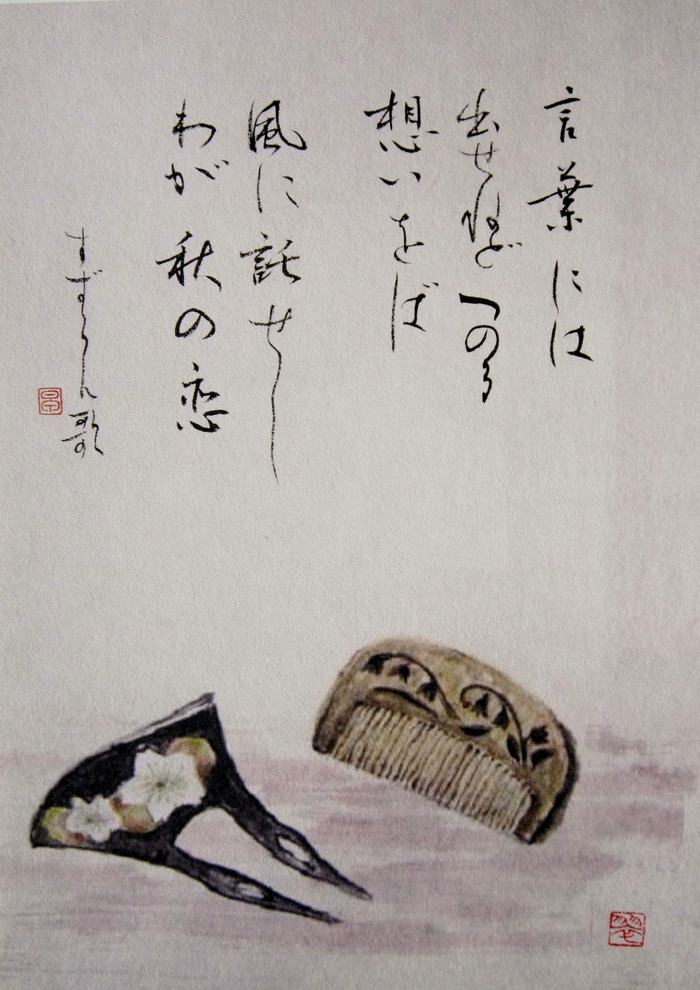 言葉には
出せねどつのる
想いをば
風に託せし
わが秋の恋
すずらん歌